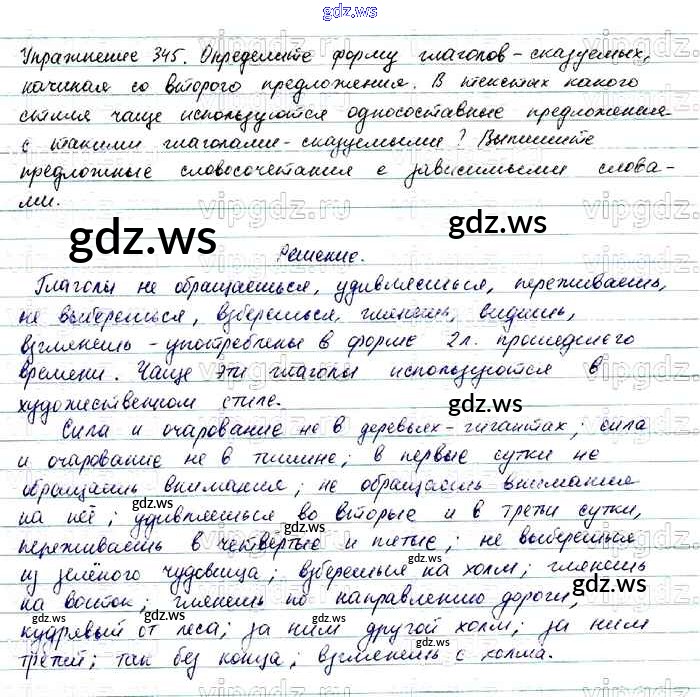 gdz.ws
Упражнение 345. Определите форму глаголов-сказуемых,
начиная со второго предложения. В текстах какого
стиля чаще используются односоставные предложения
с такими глаголами-сказуемыми? Выпишите
предложные словосочетания с зависимыми слова-
ми.
gdz.ws
gdz.ws
Решение.
Глаголы не обращаешься, удивляешься, переживаешь,
не выберешься, взберешься, глянешь, видишь,
взглянешь - употреблены в форме 2л. прошедшего
времени. Чаще эти глаголы используются в
художественном стиле.
gdz.ws
Сила и очарование не в деревьях-гигантах; сила
и очарование не в тишине; в первые сутки не
обращаешь внимания; не обращаешь внимания
на неё; удивляешься во вторые и в третьи сутки,
переживаешь в четвёртые и пятые; не выберешься
из зелёного чудовища; взберешься на холм; глянешь
на восток; глянешь по направлению дороги,
кудрявый от леса; за ним другой холм; за ним
третий; так без конца; взглянешь с холма.
gdz.ws
gdz.ws
gdz.ws
gdz.ws
gdz.ws
gdz.ws
gdz.ws